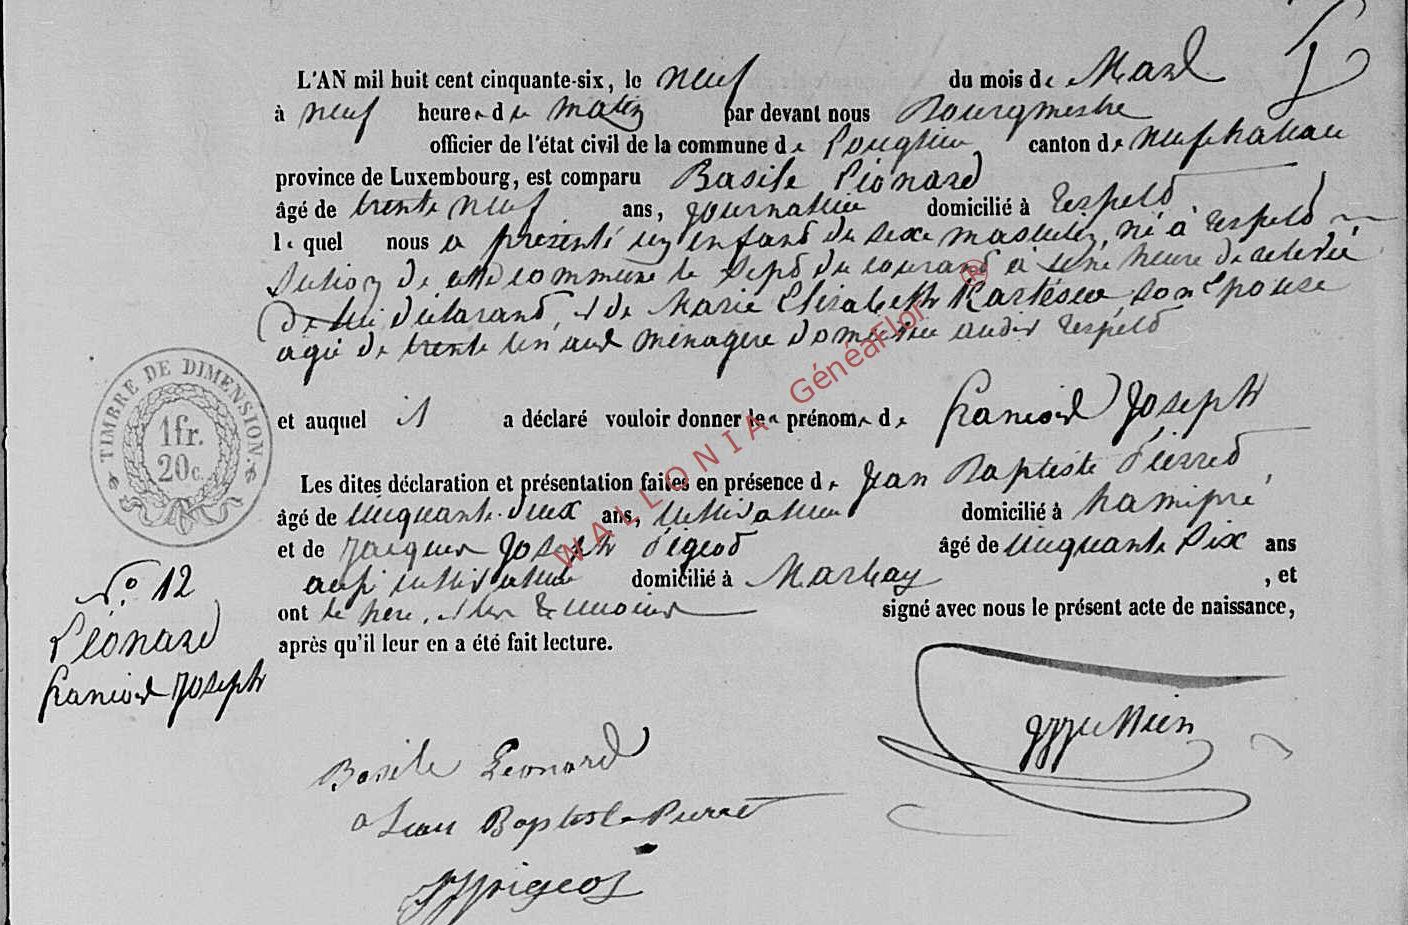 L'AN mil huit cent cinquante-six, le neuf du mois de Mars
à neuf heures du matin par devant nous Bourgmestre
officier de l'état civil de la commune de Longlier canton de Neufchateau
province de Luxembourg, est comparu Basile Léonard
âgé de trente neuf ans, journalier domicilié à Respelt
lequel nous a présenté un enfant de sexe masculin, né à Respelt
section de cette commune le sept du courant à une heure de relevée
de lui déclarant, et de Marie Elisabeth son Epouse
agée de trente un ans ménagère domiciliée audit Respelt
et auquel il a déclaré vouloir donner les prénoms de François Joseph
Les dites déclaration et présentation faites en présence de Jean Baptiste Pierret
âgé de cinquante-deux ans, cultivateur domicilié à hamipré
et de Jacques Joseph Pigeot âgé de cinquante six ans
aussi cultivateur domicilié à Marbay, et
ont le père, et les témoins signé avec nous le présent acte de naissance,
après qu'il leur en a été fait lecture.
TIMBRE DE DIMENSION.
1fr.
20c.
N° 12
Léonard
françois Joseph
Basile Léonard
Jean Baptiste Pierret
JJ pigeot
WALLONIA GénéaFlor ®